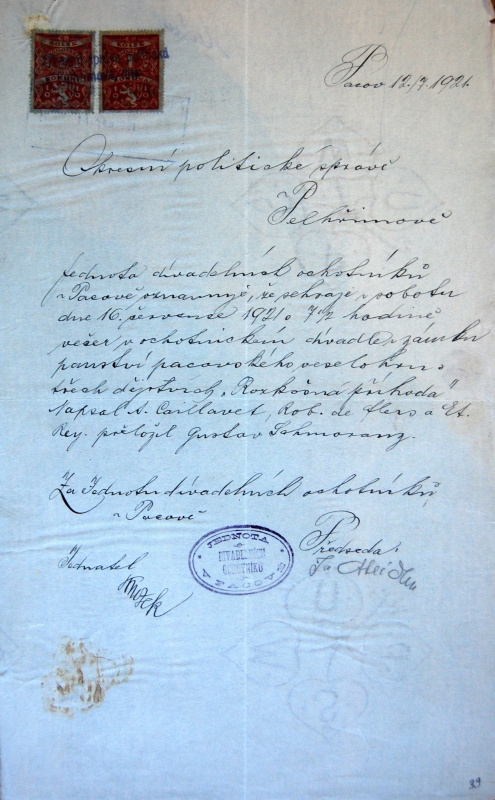 KOLEK KOLEK
Pacov 12./7. 1921.
Okresní politické správě
v Pelhřimově
Jednota divadelních ochotníků
v Pacově oznamuje, že sehraje v sobotu
dne 16. července 1921 o 7 1/2 hodině
večer v ochotnickém divadle v zámku
panství pacovského veselohru o
třech dějstvích „Rozkošná příhoda"
Napsal A. Caillavet, Rob. de Flers a Et.
Rey. přeložil Gustav Schmoranz.
Za Jednotu divadelních ochotníků
v Pacově
JEDNOTA
DIVADELNÍCH
OCHOTNÍKŮ
V PACOVĚ
Předseda:
Jednatel
39